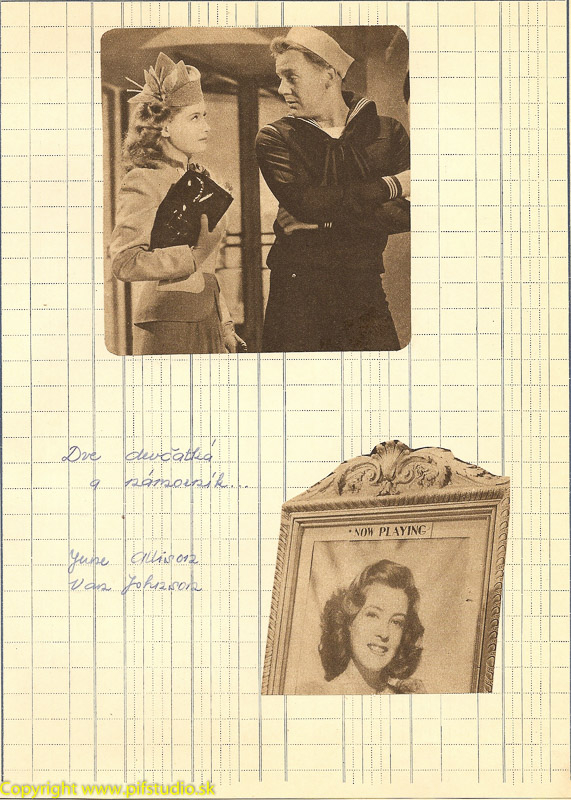 Dve dievčatká
a námorník...
June Allison
Van Johnson
NOW PLAYING
Copyright www.pifstudio.sk